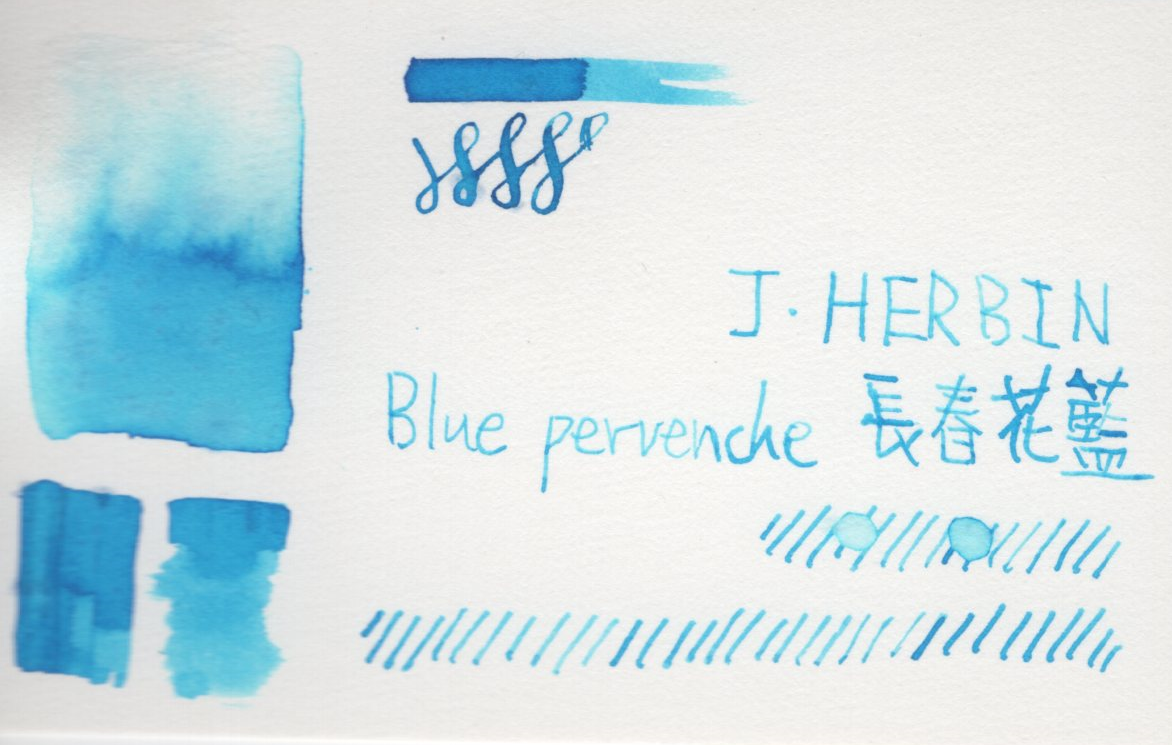 J. HERBIN
Blue pervenche 長春花藍